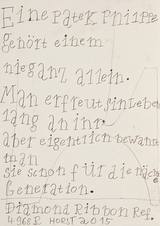 Eine Patek Philippe
gehört einem
nie ganz allein.
Man erfreut sin Leben
lang an ihr.
aber eigentlich bewahrt
man
sie schon für die näch
Generation.
Diamond Ribbon Ref.
4968R HORST 2015